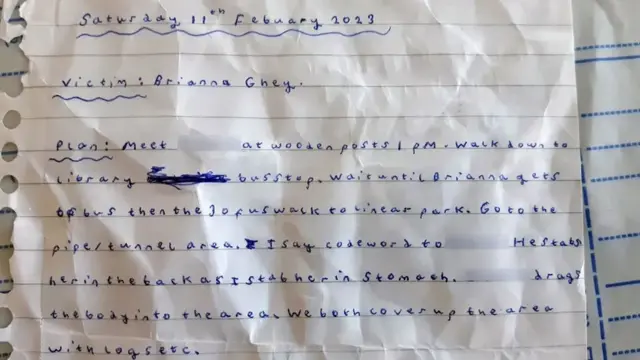 Saturday 11th Febuary 2023
Victim: Brianna Ghey.
Plan: Meet at wooden posts 1 pM. Walk down to
library bus stop. Wait until Brianna gets
off bus then the 3 of us walk to linear park. Go to the
pipe/tunnel area. I say codeword to He stabs
her in the back as I stab her in stomach. drags
the body into the area. We both cover up the area
with logs etc.